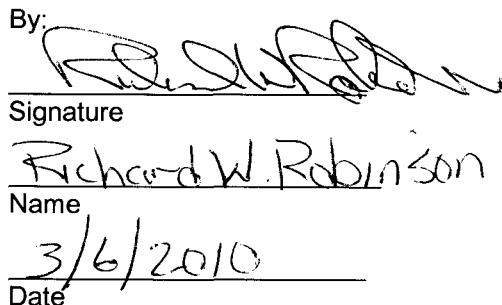 By:
Signature
Richard W. Robinson
Name
3/6/2010
Date